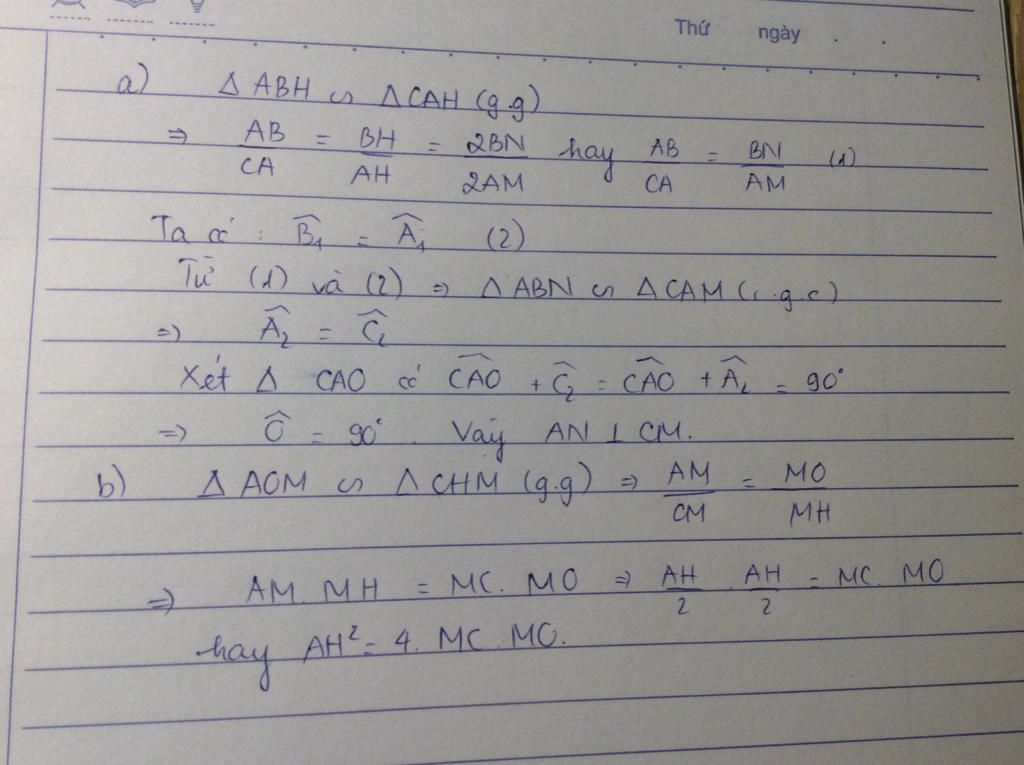 Thứ ngày . .
a) Δ ABH ∽ Δ CAH (g.g)
⇒ AB/CA = BH/AH = 2BN/2AM hay AB/CA = BN/AM (1)
Ta có : B̂₁ = Â₁ (2)
Từ (1) và (2) ⇒ Δ ABN ∽ Δ CAM (c.g.c)
⇒ Â₂ = Ĉ₂
Xét Δ CAO có CAO^ + Ĉ₂ = CAO^ + Â₂ = 90°
⇒ Ô = 90°. Vậy AN ⊥ CM.
b) Δ AOM ∽ Δ CHM (g.g) ⇒ AM/CM = MO/MH
⇒ AM. MH = MC. MO ⇒ AH/2 . AH/2 = MC. MO
hay AH² = 4. MC. MO.